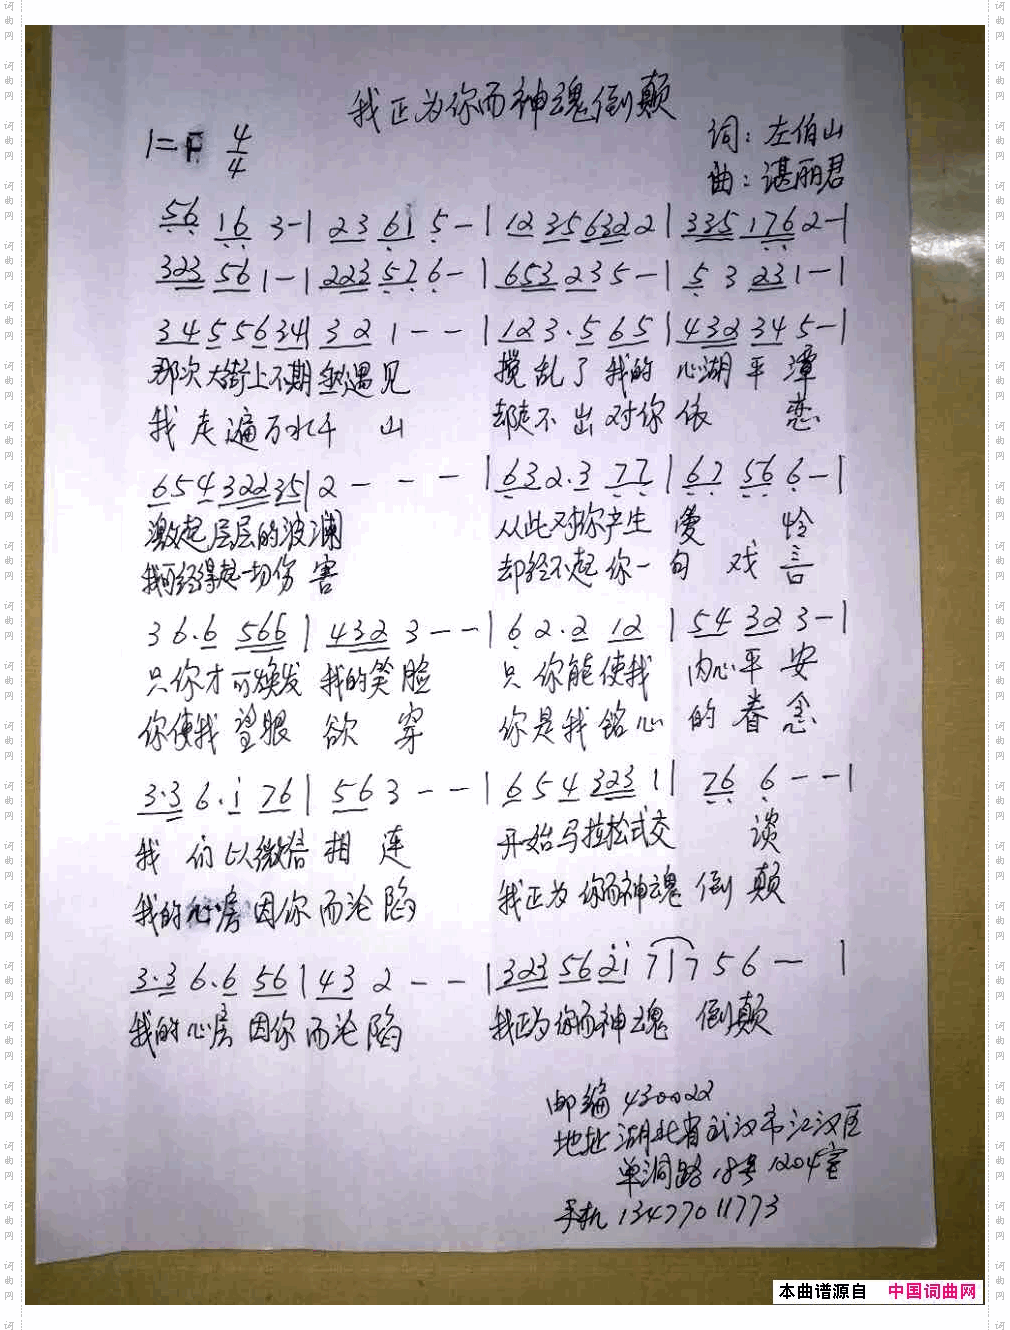 我正为你而神魂倒颠
1=F 4/4
词：左伯山
曲：谌丽君
56 16 3-| 23 61 5-| 12 356322| 335 1762-|
323 56 1-| 223 576-| 653 235-| 5 3 231-|
345 5634| 321--| 123·565| 432 345-|
那次大街上不期然遇见 搅乱了我的心湖平潭
我走遍万水千山 却走不出对你依恋
65432235|2---|632·377|67 566-|
激起层层的波澜 从此对你产生爱怜
我可经得起一切伤害 却经不起你一句戏言
36·6 566|4323--|62·2 12|54 323-|
只你才可焕发我的笑脸 只你能使我内心平安
你使我望眼欲穿 你是我铭心的眷念
3·36·i 76|563--|654 3231|76 6--|
我们以微信相连 开始马拉松式交谈
我的心房因你而沦陷 我正为你而神魂倒颠
3·36·6 56|432--|323 562i7|756-|
我的心房因你而沦陷 我正为你而神魂倒颠
邮编430022
地址湖北省武汉市江汉区
单洞路18号1204室
手机13477011773
本曲谱源自 中国词曲网